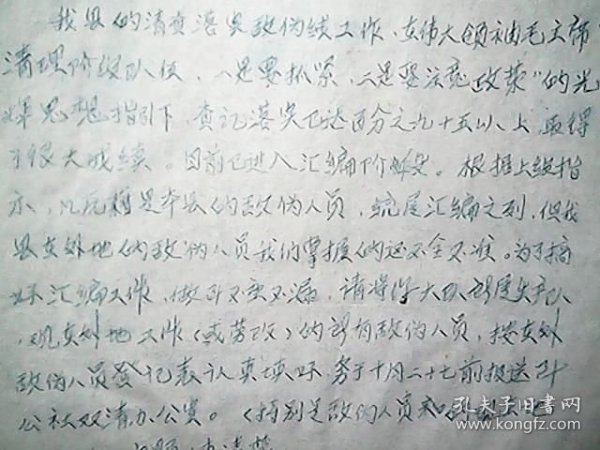 我县的清查落实敌伪续工作，在伟大领袖毛主席“
清理阶级队伍，一是要抓紧，二是要注意政策”的光
辉思想指引下，查证落实已达百分之九十五以上，取得
了很大成绩。目前已进入汇编阶段。根据上级指
示，凡原籍是本县的敌伪人员，统属汇编之列，但我
县在外地的敌伪人员我们掌握的还不全不准。为了搞
好汇编工作，做到不重不漏，请将你大队
现在外地工作（或劳改）的所有敌伪人员，按在外
敌伪人员登记表认真填好，务于十月二十七前报送到
公社双清办公室。（特别是敌伪人员
清楚
孔夫子旧书网
www.kongfz.com